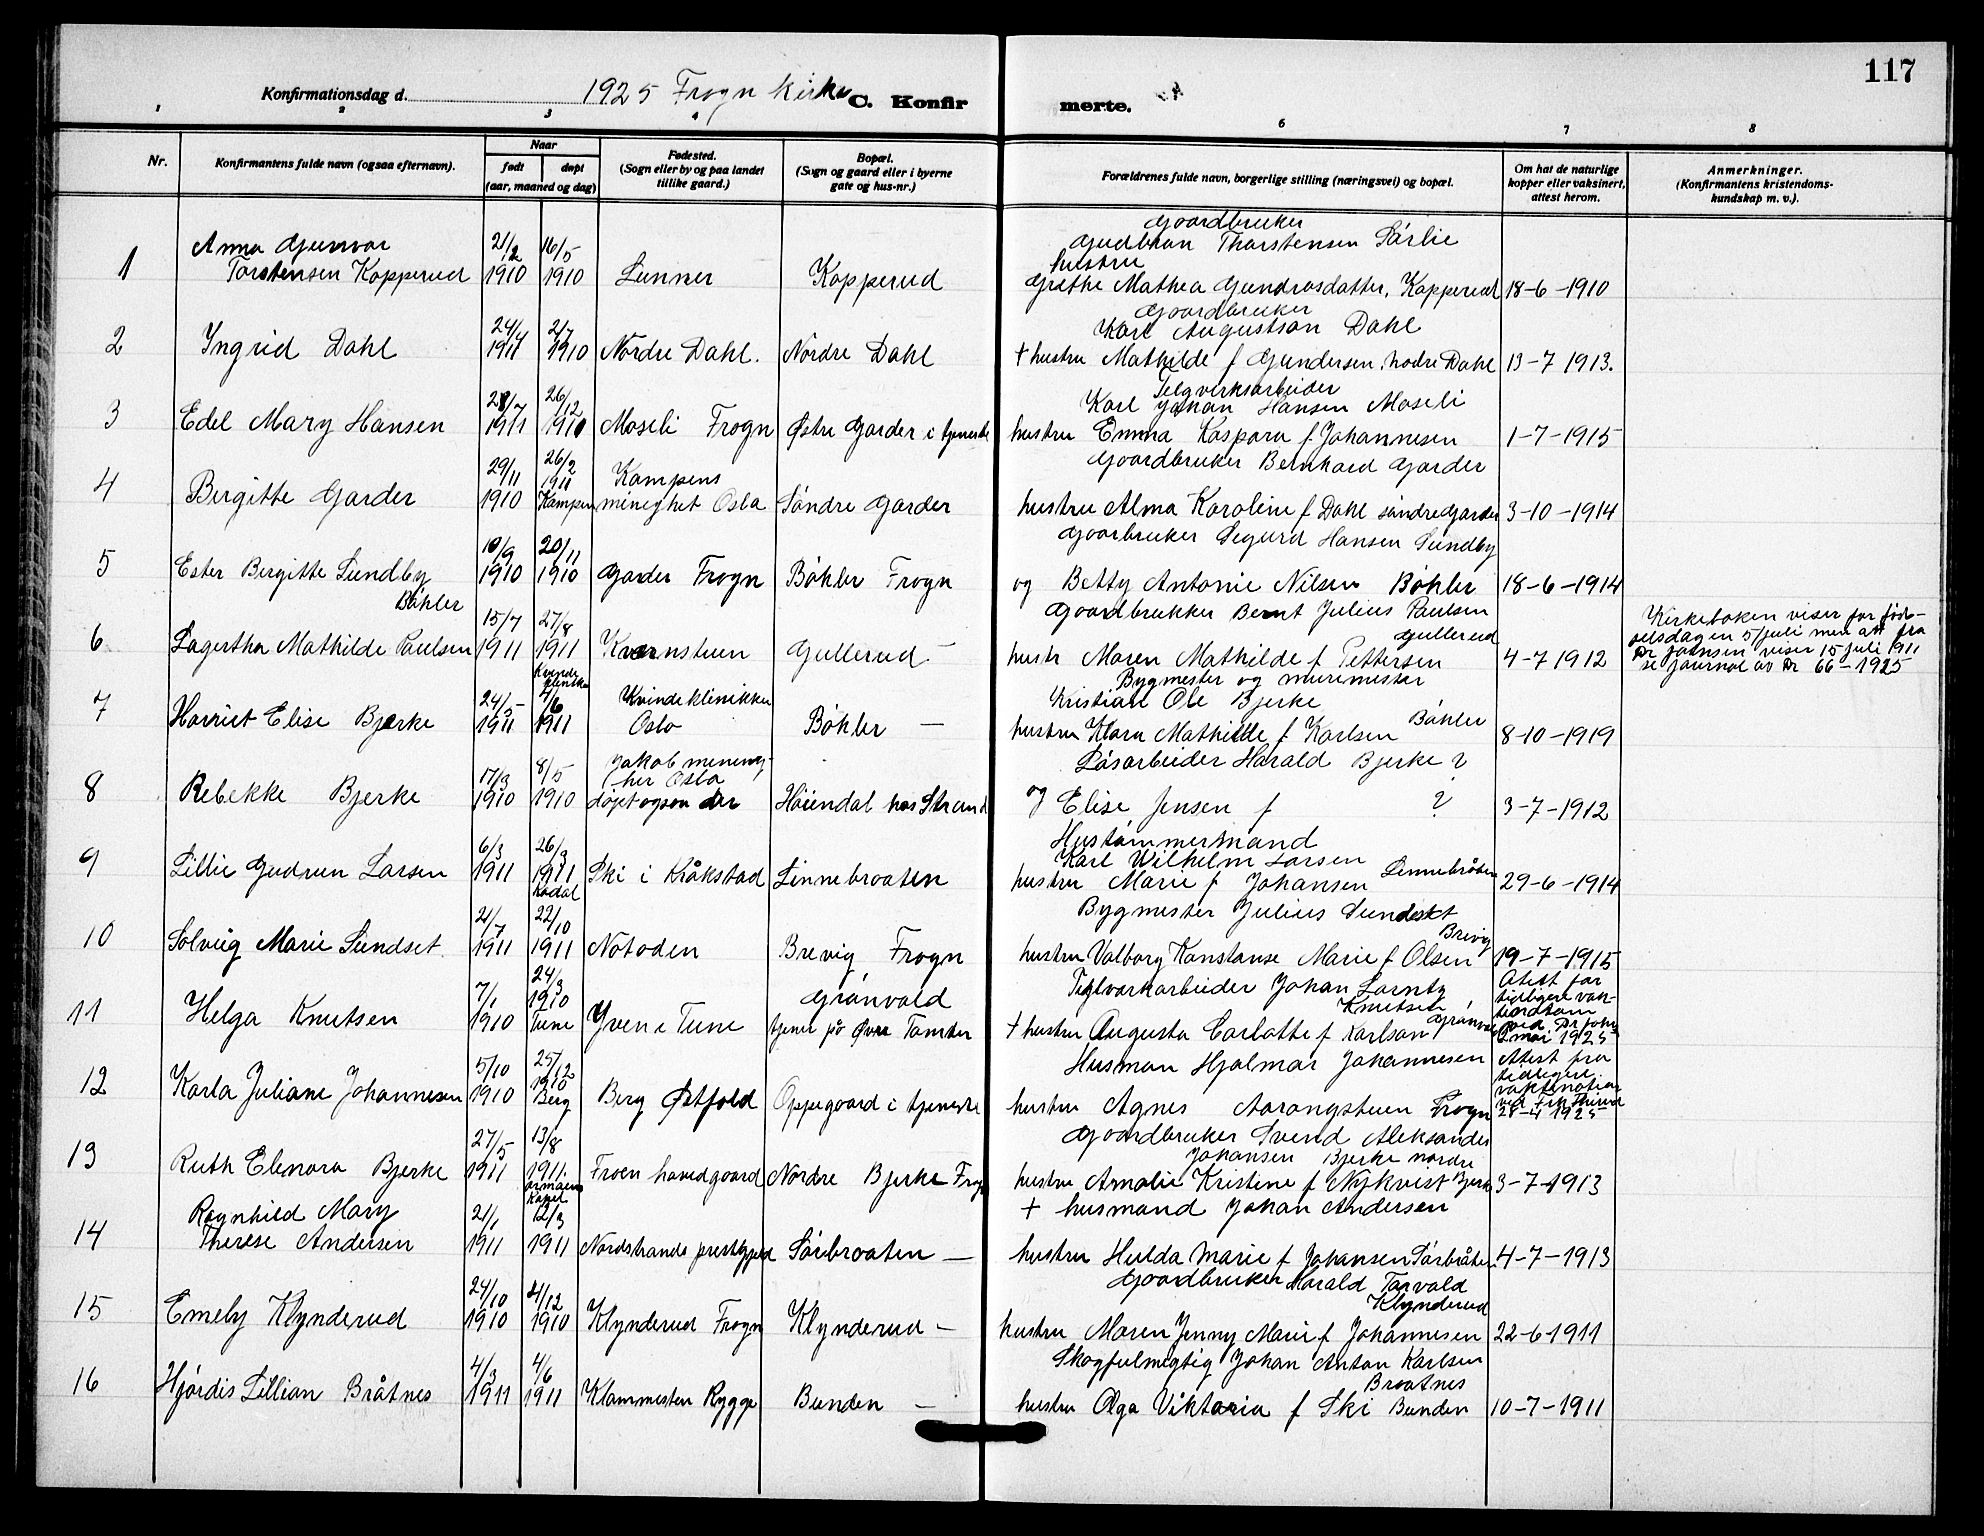 117
Konfirmationsdag d. 1925 Frogn kirke C. Konfir merte.
1 2 3 4 6 7 8
Nr. Konfirmantens fulde navn (ogsaa efternavn). Naar født døpt (aar, maaned og dag) Fødested. (Sogn eller by og paa landet tillike gaard.) Bopæl. (Sogn og gaard eller i byerne gate og hus-nr.) Forældrenes fulde navn, borgerlige stilling (næringsvei) og bopæl. Om hat de naturlige kopper eller vaksinert, attest herom. Anmerkninger. (Konfirmantens kristendoms-kundskap m. v.).
Gaardbruker
Anna Gunvor 21/2 16/5 Gudbran Thorstensen Sørlie
hustru
1 Torstensen Kopperud 1910 1910 Lunner Kopperud Grethe Mathea Gundrosdatter, Kopperud 18-6-1910
Gaardbruker
24/4 2/7 Karl Augustson Dahl
2 Ingrid Dahl 1911 1910 Nordre Dahl. Nordre Dahl + hustru Mathilde f Gundersen, nodre Dahl 13-7 1913.
Teglverksarbeider
28/7 26/12 Karl Johan Hansen Moseli
3 Edel Mary Hansen 1911 1911 Moseli Frogn Østre Garder i tjeneste hustru Emma Kaspara f Johannesen 1-7-1915
29/11 26/2 1911 Kampens Gaardbruker Bernhard Garder
4 Birgitte Garder 1910 Kampen mineghet Oslo Søndre Garder hustru Alma Karoline f Dahl søndre Garder 3-10-1914
10/9 20/11 Gaarbruker Sigurd Hansen Sundby
5 Ester Birgitte Sundby 1910 1910 Garder Frogn Bøhler Frogn og Betty Antonie Nilsen Bøhler 18-6-1914
Bøhler
15/7 27/8 Gaardbrukker Bernt Julius Paulsen
Gullerud
6 Lagertha Mathilde Paulsen 1911 1911 Kvernstuen Gullerud - hustr Maren Mathilde f Pettersen 4-7 1912
Kirkeboken viser for fød-
selsdagen 5 juli men att fra
Dr Johnsen viser 15 juli 1911
se journal av Dr 66-1925
Bygmester og murmester
24/5 4/6 Kvindeklinikken Kristian Ole Bjerke
Bøhler
7 Harriet Elise Bjerke 1911 1911 Oslo Bøhler - hustru Klara Mathilde f Karlsen 8-10-1919
17/3 8/5 Jakob menig-
her Oslo Løsarbeider Harald Bjerke ?
8 Rebekke Bjerke 1910 1910 døpt ogsaa der Høiendal hos Strand og Elise Jensen f ? 3-7-1912
Hustømmermand
6/3 26/3 Karl Wilhelm Larsen
9 Lillie Gudrun Larsen 1911 1911 Ski i Kråkstad Linnebroaten hustru Marie f Johansen Linnebråten 29-6-1914
21/7 22/10 Bygmester Julius Sundset
Brevig
10 Solveig Marie Sundset. 1911 1911 Notoden Brevig Frogn hustru Valborg Konstanse Marie f Olsen 19-7-1915
7/1 24/3 1910 Grønvold Teglverkarbeider Johan Lorntz
Knutsen
11 Helga Knutsen 1910 Tune Yven i Tune tjener på Øvre Tomter + hustru Augusta Carlotte f Karlson Grønvold
Atest for
tidligere
ved Dr John
2 mai 1925
5/10 25/12 1910 Husman Hjalmar Johannesen
12 Karla Juliane Johannesen 1910 Berg Berg Østfold Oppegaard i tjeneste hustru Agnes Aarongstuen Frogn
Attest fra
tidligere
ved
28-4 1925
27/5 13/8 Gaardbruker Svend Aleksander
Johansen Bjerke nordre
13 Ruth Elenora Bjerke 1911 1911. Froen hovedgaard Nordre Bjerke Frogn hustru Amalie Kristine f Nykvist Bjerke 3-7-1913
Ragnhild Mary 21/1 12/3 + husmand Johan Andersen
14 Therese Andersen 1911 1911 Nordstrands prestegjeld Sørebroaten - hustru Hulda Marie f Johansen Sørbråten 4-7-1913
24/10 4/12 Gaardbruker Harald Torvald
Klynderud
15 Emely Klynderud 1910 1910 Klynderud Frogn Klynderud - hustru Maren Jenny Marie f Johannesen 22-6-1911
4/3 4/6 Skogfulmegtig Johan Anton Karlsen
Braatnes
16 Hjørdis Lillian Bråtnes 1911 1911 Klommesten Rygge Bunden - hustru Olga Viktoria f Ski Bunden 10-7-1911